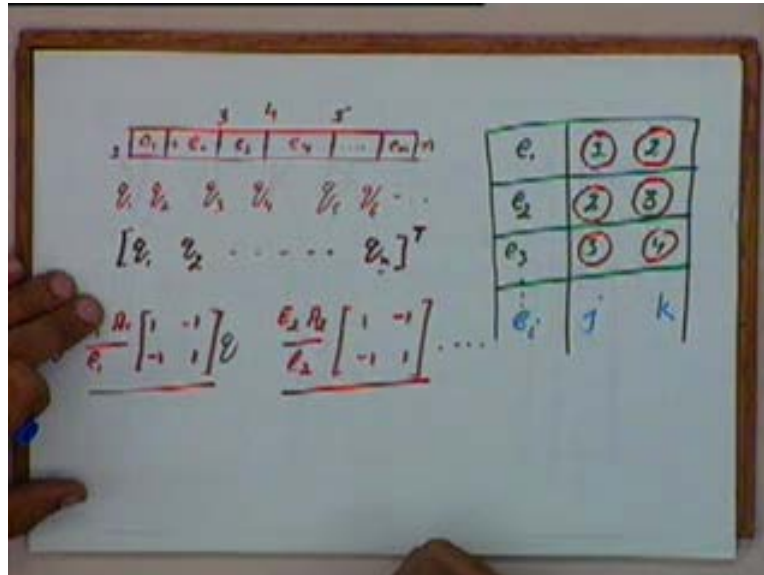 3 4 5
e₂ e₃ e₄ ..... eₙ n
q₁ q₂ q₃ q₄ q₅ q₆ ...
[q₁ q₂ ..... qₙ]ᵀ
A₁/l₁ [1 -1 -1 1] q E₂ A₂/l₂ [1 -1 -1 1] ....
e₁ 1 2
e₂ 2 3
e₃ 3 4
⋮
eᵢ j k